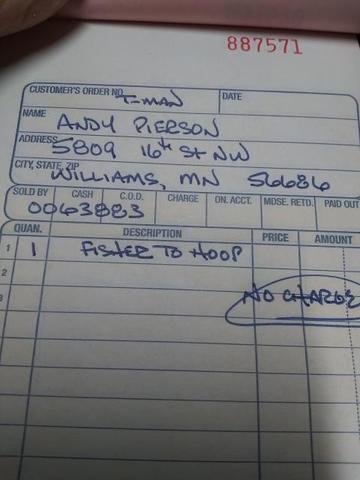 887571
CUSTOMER'S ORDER NO. T-MAN DATE
NAME ANDY PIERSON
ADDRESS 5809 16th St NW
CITY, STATE, ZIP WILLIAMS, MN 56686
SOLD BY CASH C.O.D. CHARGE ON. ACCT. MDSE. RETD. PAID OUT
0063883
QUAN. DESCRIPTION PRICE AMOUNT
1 1 FISHER TO HOOP
2
NO CHARGE
3